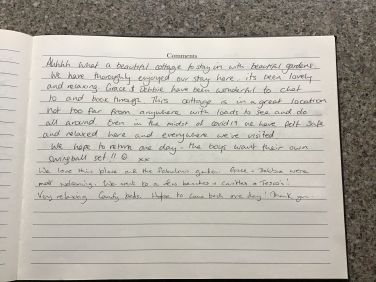 Comments
Ahhhh what a beautiful cottage to stay in with beautiful gardens.
We have thoroughly enjoyed our stay here. it's been lovely
and relaxing. Grace & Debbie have been wonderful to chat
to and book through. This cottage is in a great location
not too far from anywhere, with loads to see and do
all around. Even in the midst of covid19 we have felt safe
and relaxed here and everywhere we've visited
We hope to return one day. the boys want their own
swingball set!! ☺ xx
We love this place and the fabulous garden. Grace + Debbie were
most welcoming. We went to a few beaches + castles + Tesco's!
Very relaxing. Comfy beds. Hope to come back one day! Thank you.